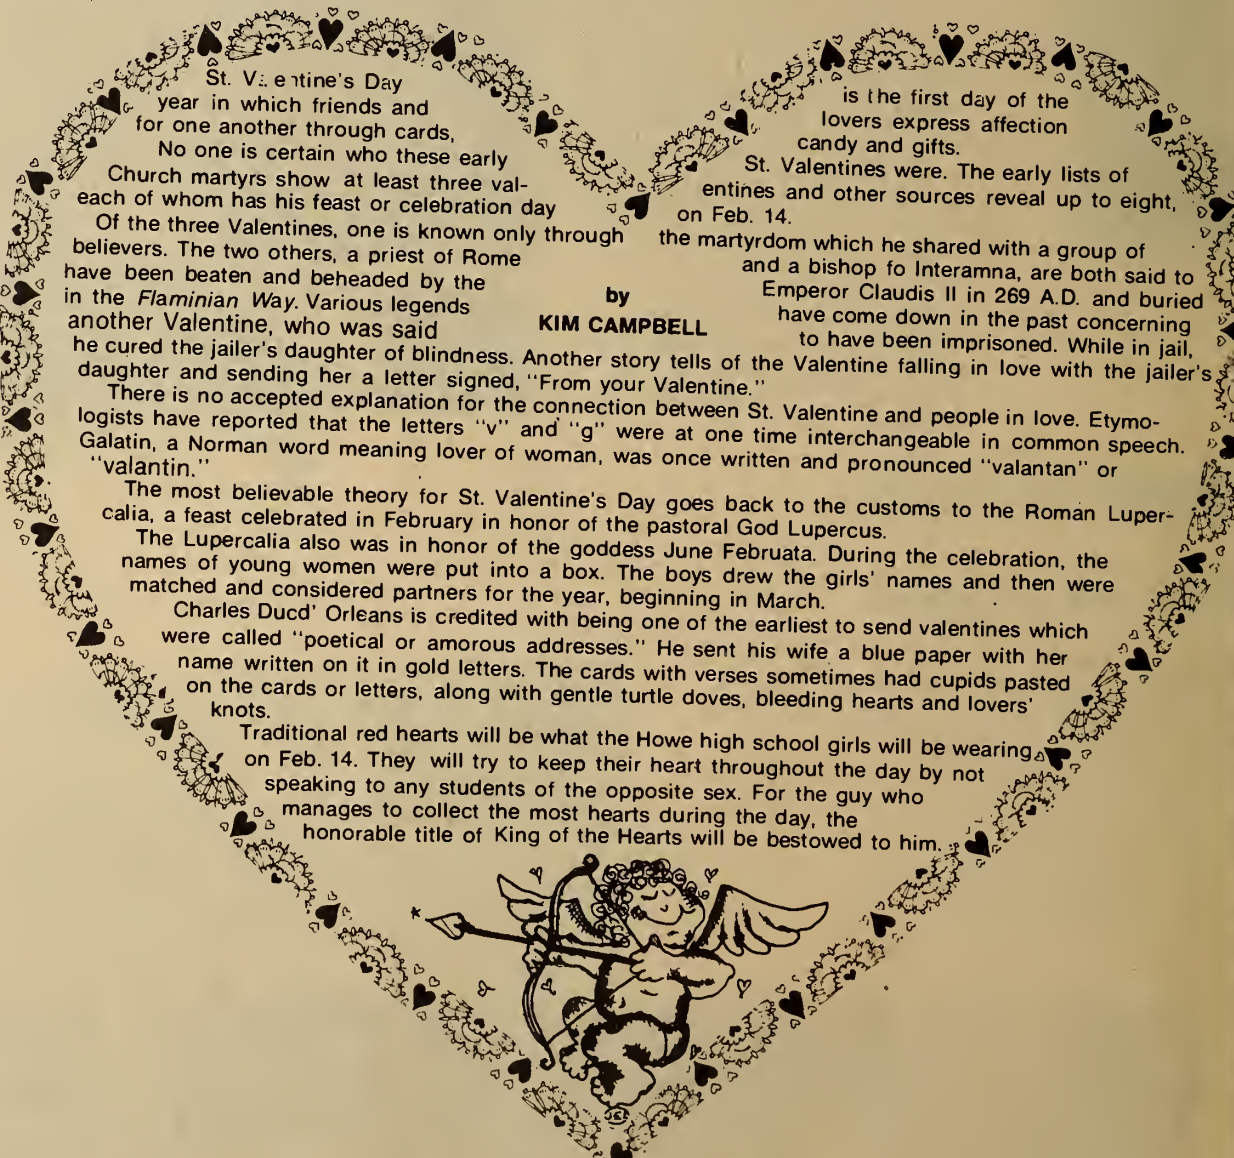 by
KIM CAMPBELL
St. Valentine's Day is the first day of the
year in which friends and lovers express affection
for one another through cards, candy and gifts.
No one is certain who these early St. Valentines were. The early lists of
Church martyrs show at least three val- entines and other sources reveal up to eight,
each of whom has his feast or celebration day on Feb. 14.
Of the three Valentines, one is known only through the martyrdom which he shared with a group of
believers. The two others, a priest of Rome and a bishop fo Interamna, are both said to
have been beaten and beheaded by the Emperor Claudis II in 269 A.D. and buried
in the Flaminian Way. Various legends have come down in the past concerning
another Valentine, who was said to have been imprisoned. While in jail,
he cured the jailer's daughter of blindness. Another story tells of the Valentine falling in love with the jailer's
daughter and sending her a letter signed, "From your Valentine."
There is no accepted explanation for the connection between St. Valentine and people in love. Etymo-
logists have reported that the letters "v" and "g" were at one time interchangeable in common speech.
Galatin, a Norman word meaning lover of woman, was once written and pronounced "valantan" or
"valantin."
The most believable theory for St. Valentine's Day goes back to the customs to the Roman Luper-
calia, a feast celebrated in February in honor of the pastoral God Lupercus.
The Lupercalia also was in honor of the goddess June Februata. During the celebration, the
names of young women were put into a box. The boys drew the girls' names and then were
matched and considered partners for the year, beginning in March.
Charles Ducd' Orleans is credited with being one of the earliest to send valentines which
were called "poetical or amorous addresses." He sent his wife a blue paper with her
name written on it in gold letters. The cards with verses sometimes had cupids pasted
on the cards or letters, along with gentle turtle doves, bleeding hearts and lovers'
knots.
Traditional red hearts will be what the Howe high school girls will be wearing
on Feb. 14. They will try to keep their heart throughout the day by not
speaking to any students of the opposite sex. For the guy who
manages to collect the most hearts during the day, the
honorable title of King of the Hearts will be bestowed to him.